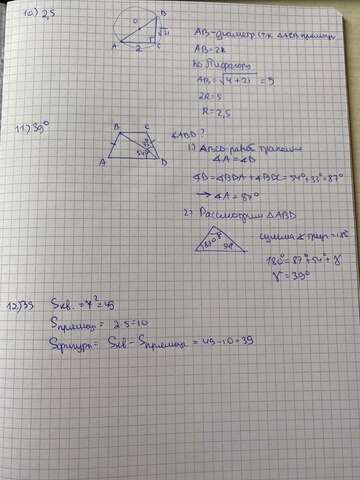 10) 2,5
B
O
√21
A
2
C
AB-диаметр (т.к. ΔACB прямоуг.
AB=2R
по Пифагору
AB=√4+21 = 5
2R=5
R=2,5
11) 39°
B
C
A
D
33°
54°
∠ABD?
1) ABCD-равноб трапеция
∠A=∠D
∠D=∠BDA+∠BDC=54°+33°=87°
→ ∠A=87°
2) Рассмотрим ΔABD
γ
54°
сумма ∠ треуг.=180°
180°=87°+54°+γ
γ=39°
12) 39
Sкв.=7²=49
Sпрямоуг=2·5=10
Sфигуры=Sкв-Sпрямоуг=49-10=39